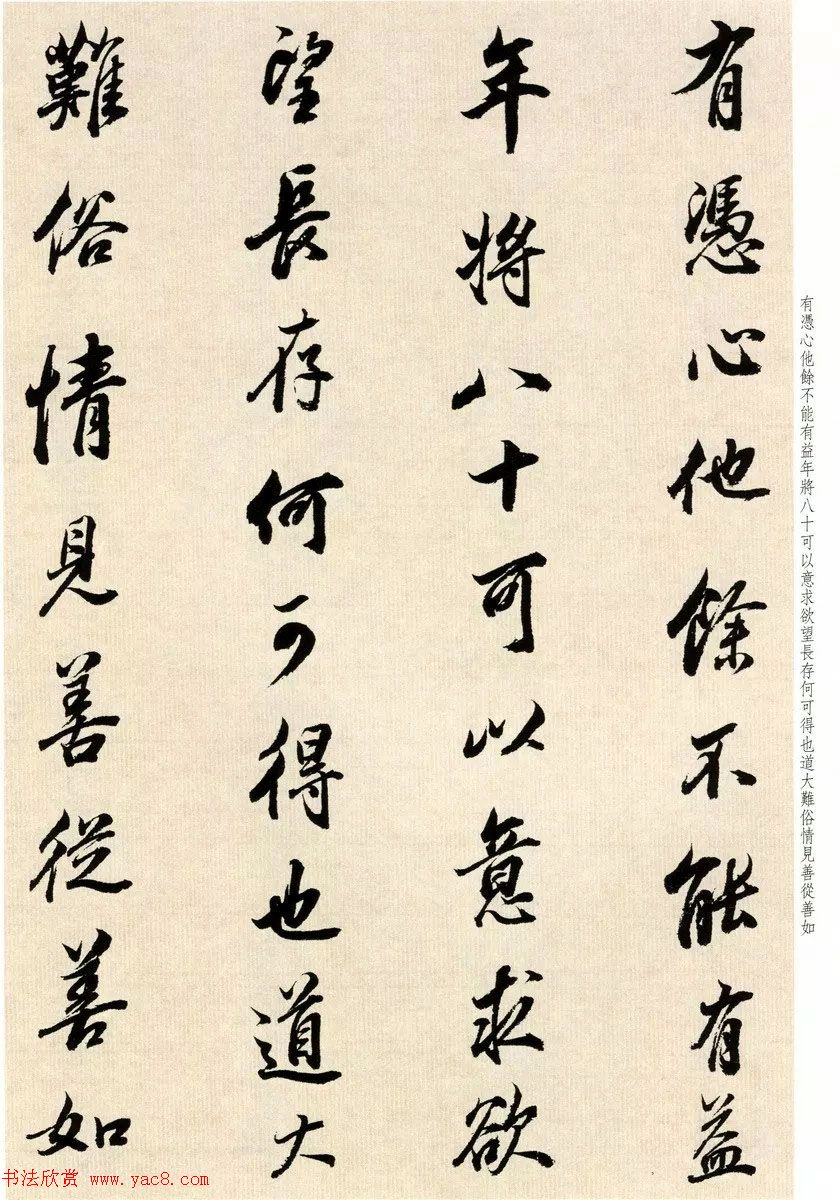 有憑心他餘不能有益
年將八十可以意求欲
望長存何可得也道大
難俗情見善從善如
有憑心他餘不能有益年將八十可以意求欲望長存何可得也道大難俗情見善從善如
书法欣赏 www.yac8.com